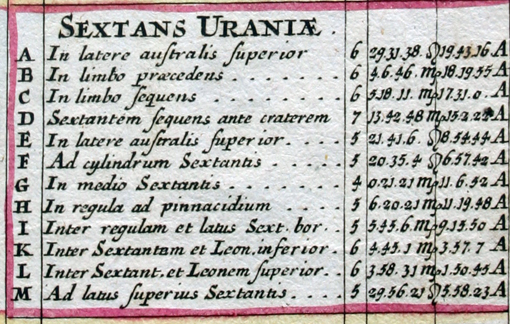 SEXTANS URANIÆ.
A In latere auſtralis ſuperior 6 29.31.38. ♌ 19.43.16. A
B In limbo præcedens . . . . . . 6 4.6.46. ♍ 18.19.55 A
C In limbo ſequens . . . . . . . 6 5.18.11. ♍ 17.31.0. A
D Sextantem ſequens ante craterem 7 13.42.48 ♍ A
E In latere auſtralis ſuperior. . . . . 5 21.41.6. ♌ 8.54.44 A
F Ad cylindrum Sextantis . . . . . 5 20.35.4 ♌ 6.57.42 A
G In medio Sextantis . . . . . . . 4 0.21.21 ♍ 11.6.52 A
H In regula ad pinnacidium . . . . . 5 6.20.21 ♍ 11.19.48 A
I Inter regulam et latus Sext. bor. . . 5 5.45.6 ♍ 9.15.50 A
K Inter Sextantem et Leon. inferior . . 6 4.45.1 ♍ 3.57.7 A
L Inter Sextant. et Leonem ſuperior. . . 6 3.58.31 ♍ 1.50.45 A
M Ad latus ſuperius Sextantis . . . . 5 29.56.21 ♌ 5.58.23 A